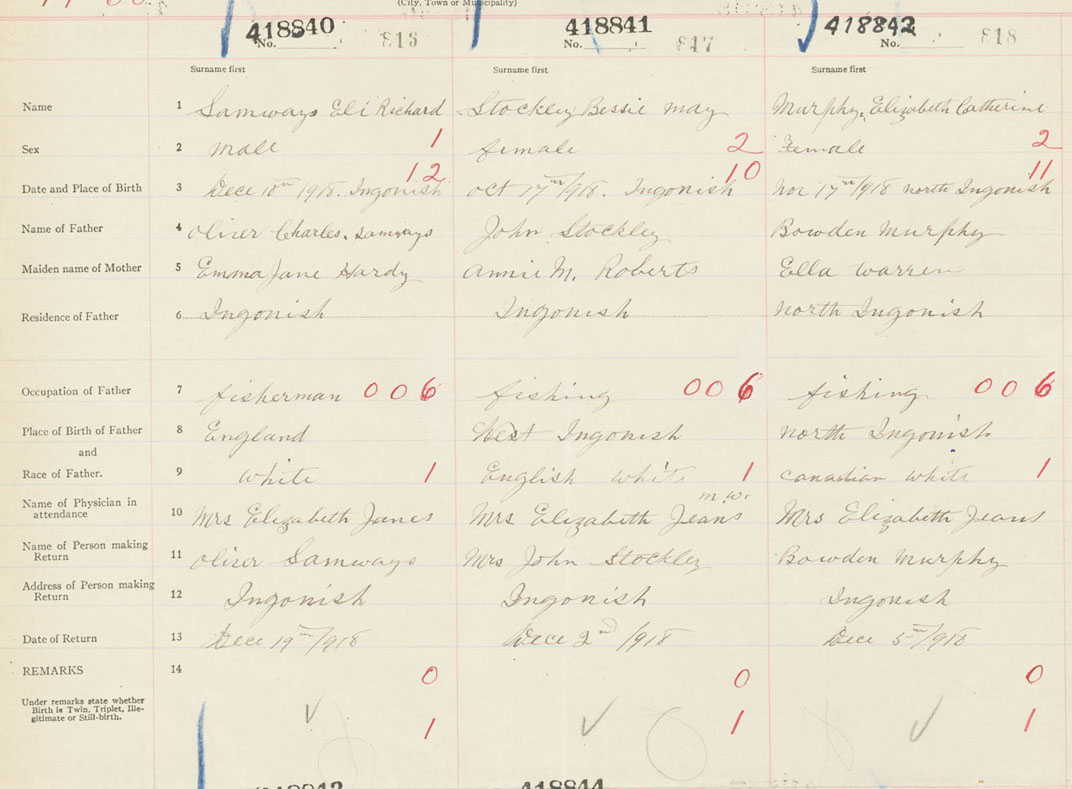 (City, Town or Municipality)
418840 418841 418842
No. 816 No. 817 No. 818
Surname first Surname first Surname first
Name 1 Samways Eli Richard Stockley Bessie may Murphy, Elizabeth Catherine
Sex 2 male 1 female 2 Female 2
12 10 11
Date and Place of Birth 3 Dece 10th 1918. Ingonish oct 17th/918. Ingonish nov 17th/918 north Ingonish
Name of Father 4 Oliver Charles. Samways John Stockley Bowden Murphy
Maiden name of Mother 5 Emma Jane Hardy Annie M. Roberts Ella Warren
Residence of Father 6 Ingonish Ingonish north Ingonish
Occupation of Father 7 fisherman 006 fishing 006 fishing 006
Place of Birth of Father 8 England West Ingonish north Ingonish
and
Race of Father. 9 white 1 English white 1 canadian white 1
m.w.
Name of Physician in
attendance 10 Mrs Elizabeth Janes Mrs Elizabeth Jeans Mrs Elizabeth Jeans
Name of Person making
Return 11 Oliver Samways Mrs John Stockley Bowden Murphy
Address of Person making
Return 12 Ingonish Ingonish Ingonish
Date of Return 13 Dece 19th/918 Dece 2nd/918 Dece 5th/918
REMARKS 14 0 0 0
Under remarks state whether
Birth is Twin, Triplet, Ille-
gitimate or Still-birth. 1 1 1
418844